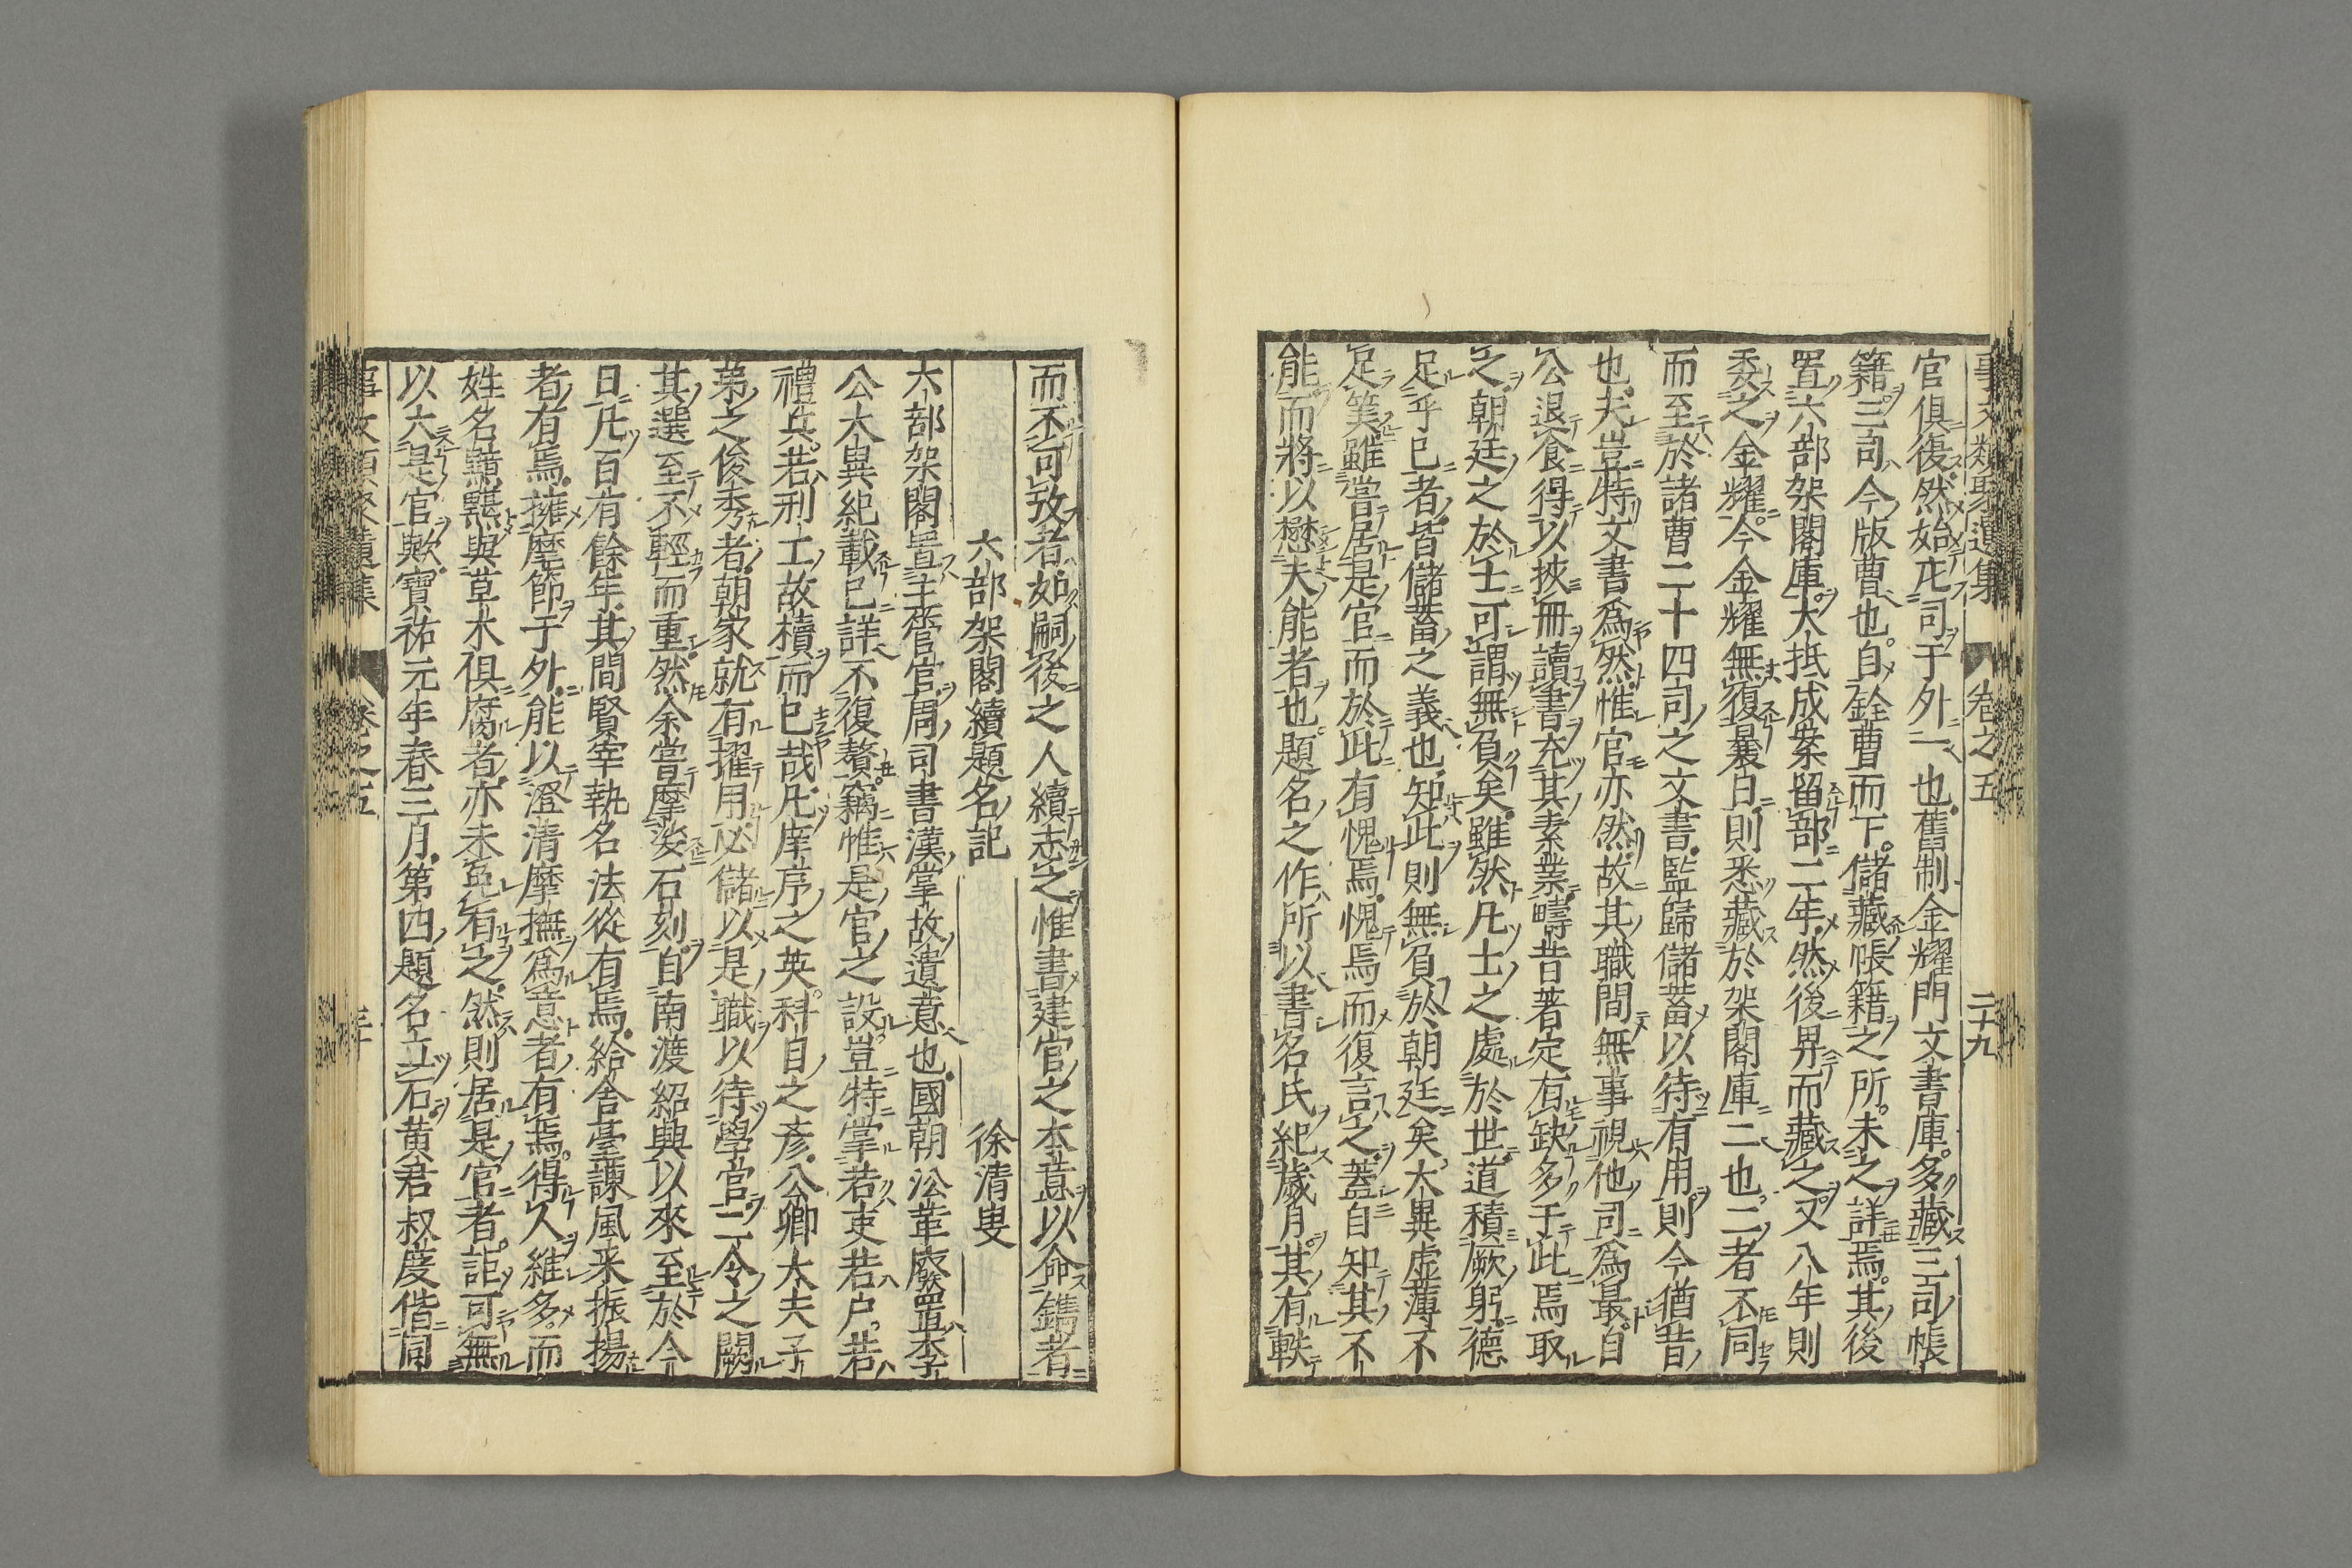 事文類聚遺集 卷之五 二十九
官俱復然始庀司于外一也舊制金耀門文書庫多藏三司帳
籍三司今版曹也自銓曹而下儲藏帳籍之所未之詳焉其後
置六部架閣庫大抵成案留部二年然後畀而藏之又八年則
委之金耀今金耀無復曩日則悉藏於架閣庫二也二者不同
而至於諸曹二十四司之文書監歸儲蓄以待有用則今猶昔
也夫豈特文書爲然惟官亦然故其職間無事視他司爲最自
公退食得以挾冊讀書充其素業疇昔著定有缺多于此焉取
之朝廷之於士可謂無負矣雖然凡士之處於世道積厥躬德
足乎已者皆儲蓄之義也知此則無負於朝廷矣大異虛薄不
足筭雖嘗居是官而於此有愧焉愧焉而復言之蓋自知其不
能而將以懋夫能者也題名之作所以書名氏紀歲月其有軼
而不可攷者如嗣後之人續志之惟書建官之本意以命鐫者
六部架閣續題名記 徐清叟
六部架閣置主管官周司書漢掌故遺意也國朝沿革廢置李
公大異紀載已詳不復贅竊惟是官之設豈特掌若吏若户若
禮兵若刑工故櫝而已哉凡庠序之英科目之彥公卿大夫子
弟之俊秀者朝家就有擢用必儲以是職以待學官二令之闕
其選至不輕而重然余嘗摩挲石刻自南渡紹興以來至於今
日凡百有餘年其間賢宰執名法從有焉給舍臺諫風采振揚
者有焉擁麾節于外能以澄清摩撫爲意者有焉得人維多而
姓名黯黮與草木俱腐者亦未免有之然則居是官者詎可無
以六是官歟寶祐元年春三月第四題名立石黄君叔度偕同
事文類聚遺集 卷之五 三十